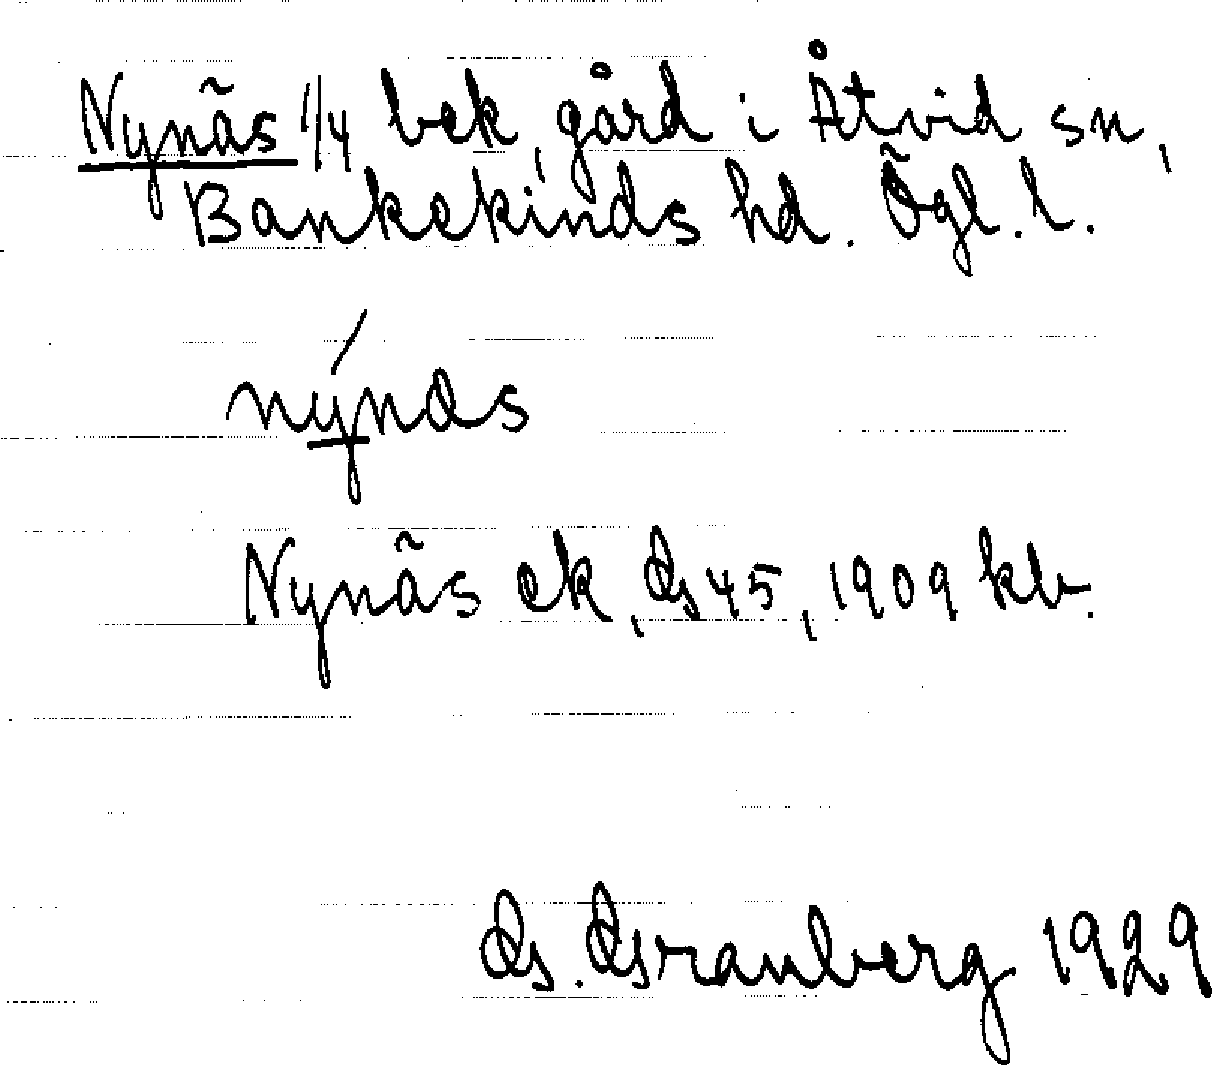 Nynäs 1/4 bek, gård i Åtvid sn,
Bankekinds hd. Ögl. l.
nýnäs
Nynäs ek, Gs 45, 1909 kb.
G. Granberg 1929